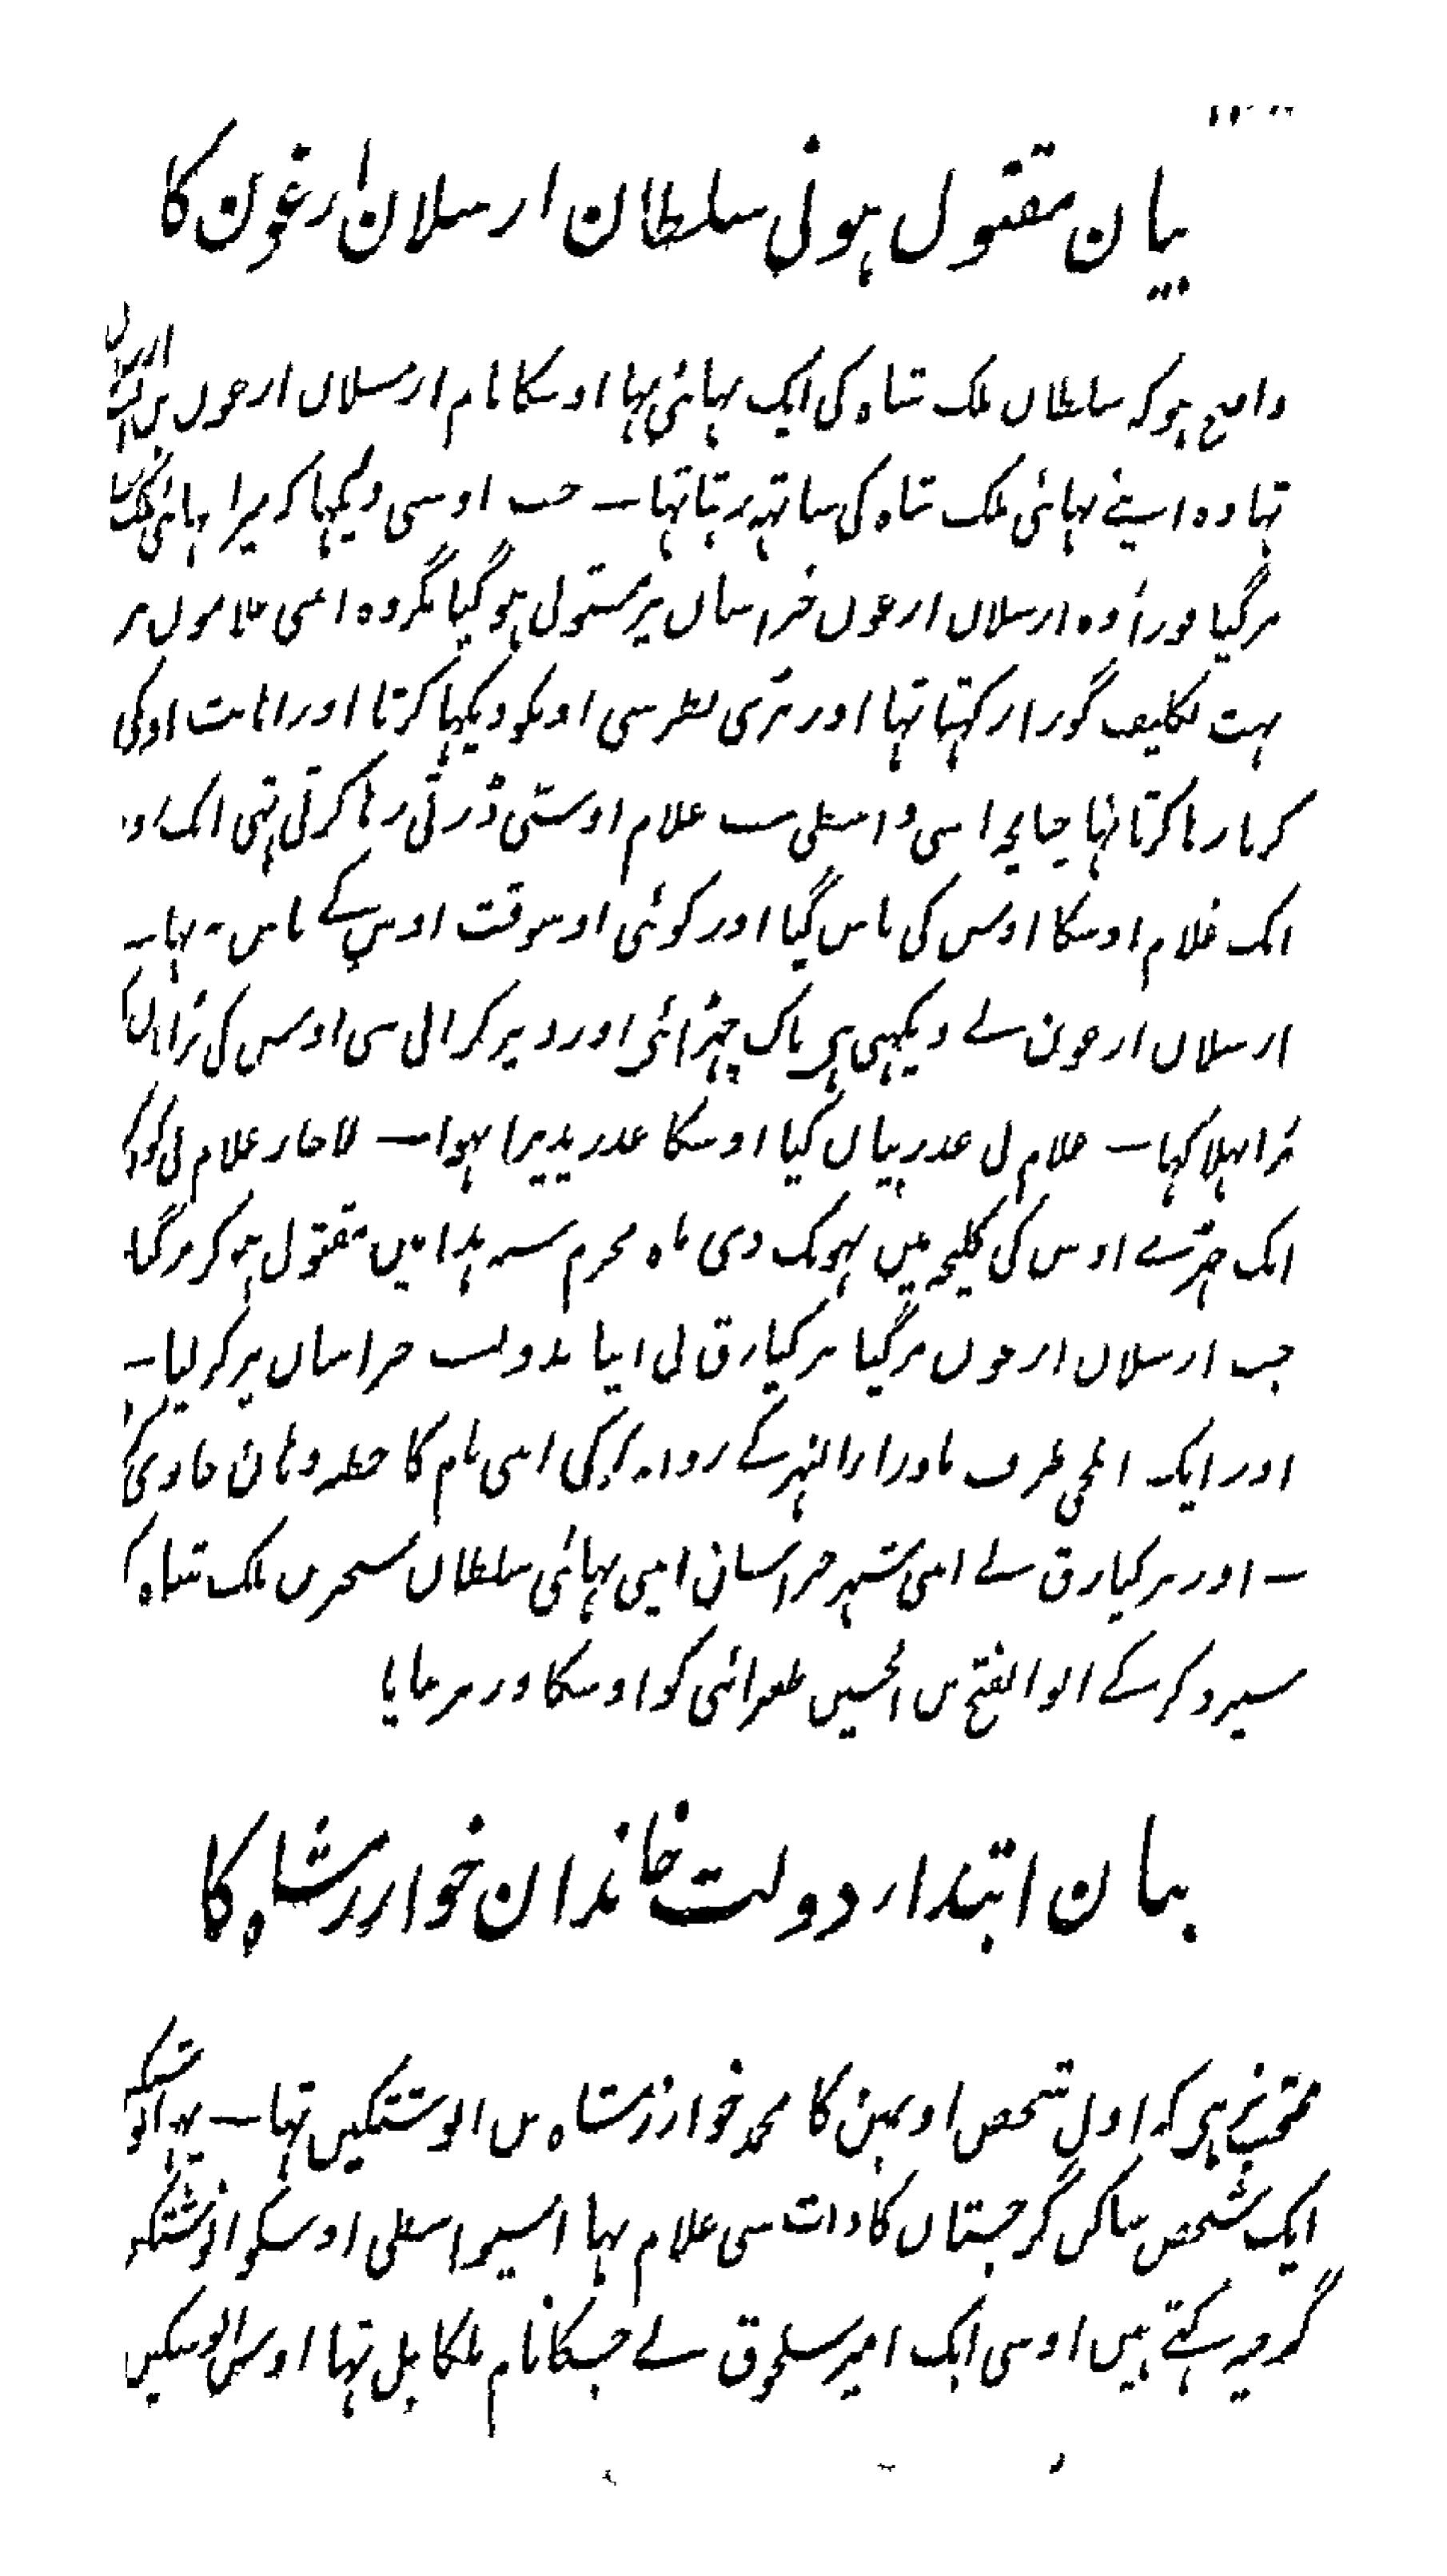 بیان مقتول ہونی سلطان ارسلان ارغون کا
واضح ہو کہ سلطان ملک شاہ کی ایک بہائی تہا اوسکا نام ارسلان ارغون بن الپ ارسلان
تہا وہ اپنے بہائی ملک شاہ کی ساتہہ رہتا تہا ۔ جب اوسی دیکہا کہ میرا بہائی ملک شاہ
مر گیا فوراً وہ ارسلان ارغون خراسان پر مستولی ہو گیا مگر وہ اپنی غلامون پر
بہت تکلیف گورا رکہتا تہا اور بری نظر سی اونکو دیکہا کرتا اور اہانت اونکی
کرتا رہا کرتا تہا چنانچہ اسی واسطی سب غلام اوستی ڈرتی رہا کرتی تہی ایک روز
ایک غلام اوسکا اوس کی پاس گیا اور کوئی اوسوقت اوس کے پاس نہ تہا ۔
ارسلان ارغون نے دیکہتی ہی ناک چڑہائی اور دیر کر آنی سی اوس کی
برا بہلا کہا ۔ غلام نی عذر بیان کیا اوسکا عذر پذیرا نہوا ۔ لاچار غلام نی
ایک چہرے اوس کی کلیجہ میں بہونک دی ماہ محرم سنہ ہذا میں مقتول ہو کر مر گیا
جب ارسلان ارغون مر گیا برکیارق نی اپنا بندوبست خراسان پر کر لیا ۔
اور ایک ایلچی طرف ماوراء النہر کے روانہ کر کی اپنی نام کا خطبہ وہان جاری
۔ اور برکیارق نے اپنی شہر خراسان اپنی بہائی سلطان سنجر بن ملک شاہ
سپرد کر کے ابو الفتح بن الحسین طغرائی کو اوسکا وزیر بنایا
بیان ابتداء دولت خاندان خوارزمشاہ کا
مخفی نرہی کہ اول شخص اونہین کا محمد خوارزمشاہ بن انوشتکین تہا ۔ یہہ انوشتکین
ایک شخص ساکن گرجستان کا ذات سی غلام تہا اسیواسطی اوسکو انوشتکین
گرجہ کہتے ہیں اوسی ایک امیر سلجوق نے جسکا نام ملکابل تہا اوس انوشتکین